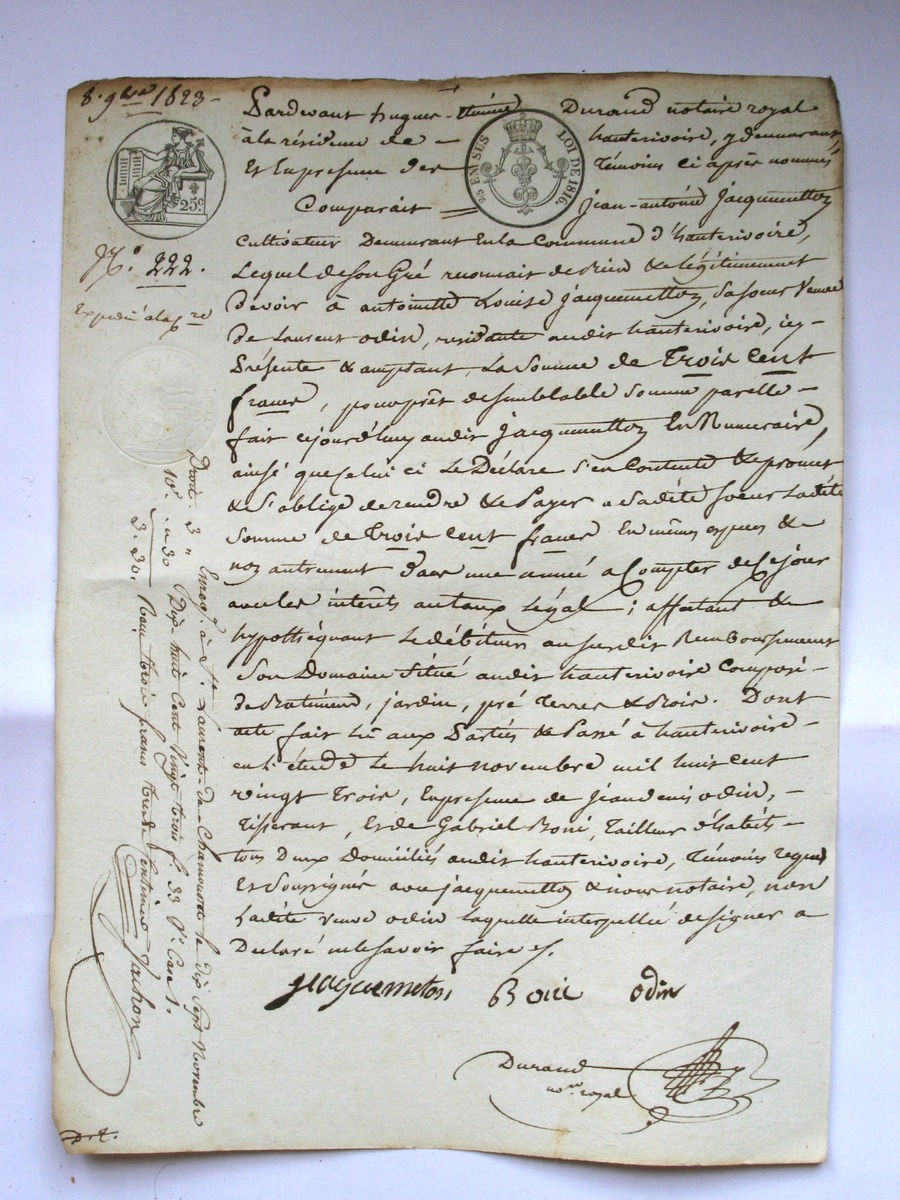 8. 9bre 1823 -
25c
25 EN SUS LOI DE 1816.
N.° 222.
Expédié a la gre
Pardevant hugues - Etienne Durand notaire royal
à la résidence de hauterivoire, y demeurant,
Et En presence des Témoins ci après nommés
Comparait = jean-antoine jacquemetton
Cultivateur Demeurant En la Commune d'hauterivoire,
Lequel de Son Gré reconnait de bien & légitimement
Devoir à antoinette Louise jacquemetton, Sa Soeur Veuve
De Laurent odin, residante audit hauterivoire, icy
Présente & acceptant, La Somme de Trois Cent
francs, pour prêt de Semblable Somme pareille -
fait cejourd'huy audit jacquemetton En Numeraire,
ainsi que celui ci Le Déclare S'en Contente & promet
& S'oblige de rendre & de Payer a Sadite Soeur Ladite
Somme de trois Cent francs En mêmes especes &
non autrement Dans une année a Compter de Ce jour
avec les intérêts au taux Légal ; affectant &
hypothéquant Le débiteur au Susdit Remboursement
Son Domaine Situé audit hauterivoire Composé -
De Batiment, jardin, pré Terres & Bois. Dont
acte fait Lu aux Parties & Passé à hauterivoire -
en L'étude Le huit novembre mil huit cent
vingt Trois, En presence de jean denis odin, -
Tisserant, Et de Gabriel Boni, Tailleur d'habits -
tous Deux Domiciliés audit hauterivoire, Témoins requis
Et Soussignés avec jacquemetton & nous notaire, non
Ladite veuve odin laquelle interpellée de signer a
Declaré ne le Savoir faire
jacquemeton Boni odin
Durand
nore royal
Enreg. à St. Laurent-de-Chamousset le dix Sept Novembre
Droit 3 " Dix-huit Cent Vingt trois f.° 33 V.° Case 1.
10e " 30
3. 30. Reçu trois francs trente Centimes Vachon
D. L.